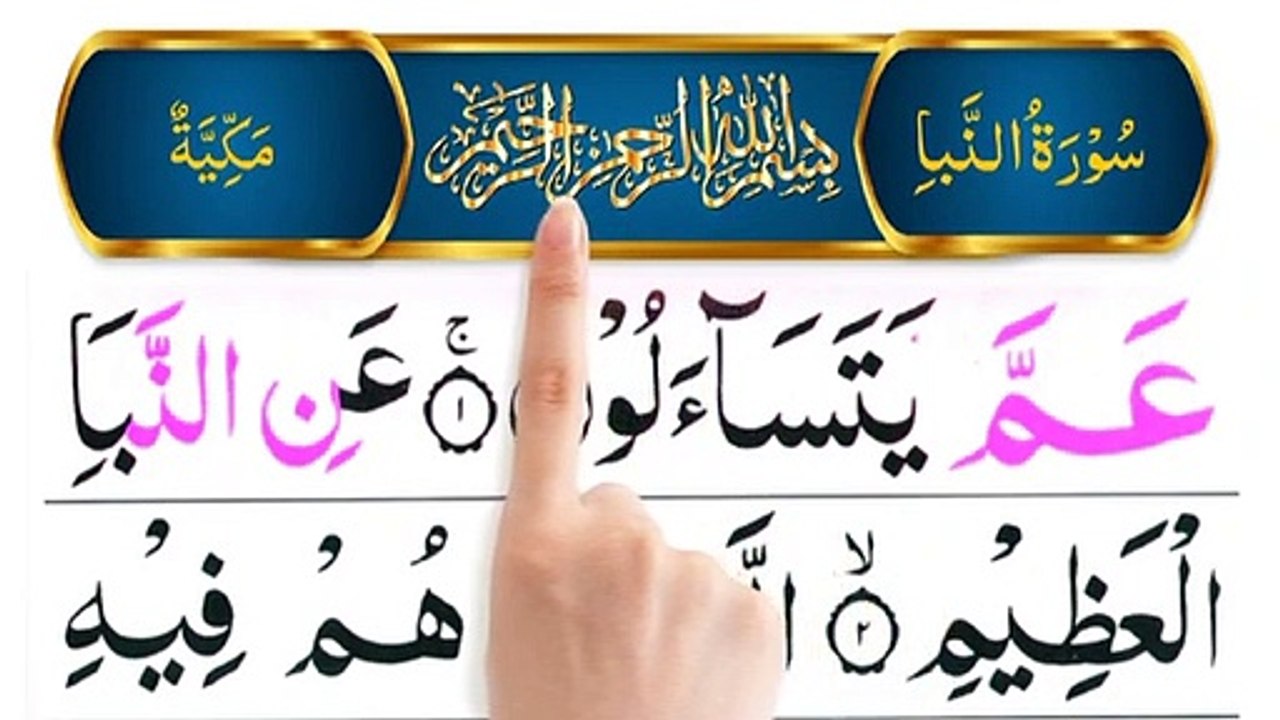 سُوْرَةُ النَّبَاِ
بِسْمِ اللّٰهِ الرَّحْمٰنِ الرَّحِيْمِ
مَكِّيَّةٌ
عَمَّ يَتَسَآءَلُوْ ۚ ﴿١﴾ عَنِ النَّبَاِ
الْعَظِيْمِ ۙ ﴿٢﴾ هُمْ فِيْهِ